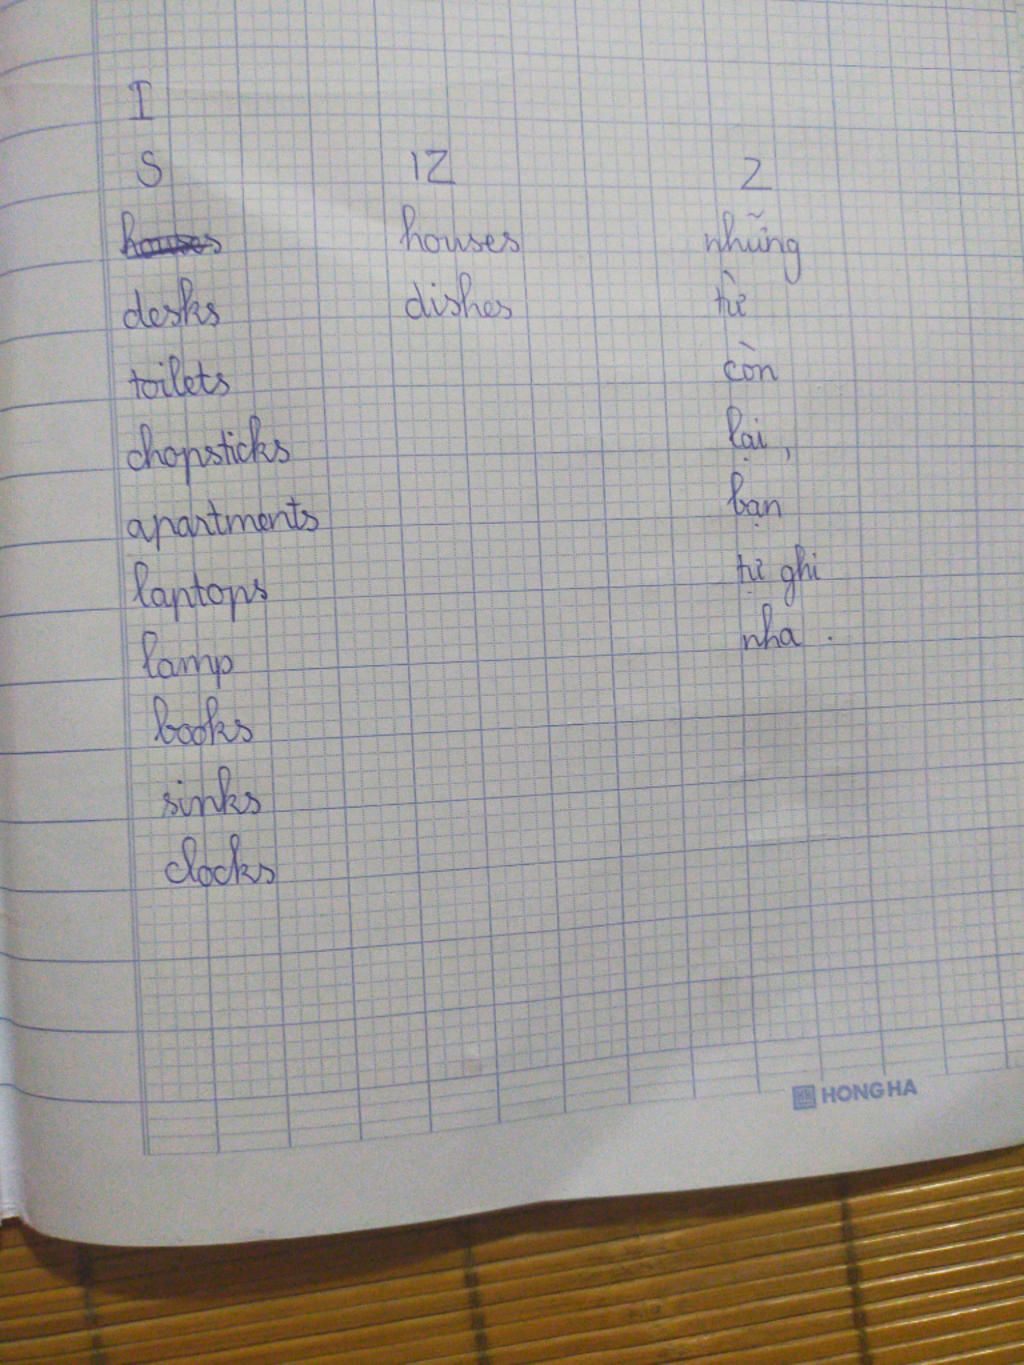 I
S IZ Z
houses houses những
desks dishes từ
toilets còn
chopsticks lại,
apartments bạn
laptops tự ghi
lamp nha.
books
sinks
clocks
HONG HA